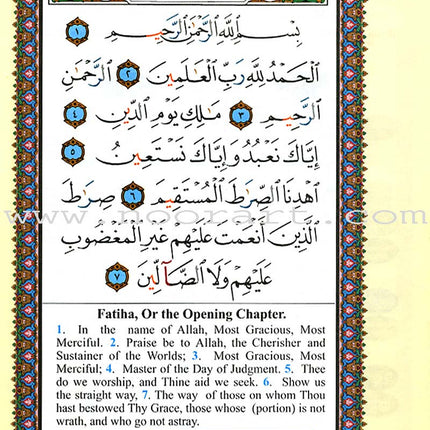 بِسْمِ ٱللَّهِ ٱلرَّحْمَٰنِ ٱلرَّحِيمِ ١
ٱلْحَمْدُ لِلَّهِ رَبِّ ٱلْعَٰلَمِينَ ٢ ٱلرَّحْمَٰنِ
ٱلرَّحِيمِ ٣ مَٰلِكِ يَوْمِ ٱلدِّينِ ٤
إِيَّاكَ نَعْبُدُ وَإِيَّاكَ نَسْتَعِينُ ٥
ٱهْدِنَا ٱلصِّرَٰطَ ٱلْمُسْتَقِيمَ ٦ صِرَٰطَ
www.noorart.com
ٱلَّذِينَ أَنْعَمْتَ عَلَيْهِمْ غَيْرِ ٱلْمَغْضُوبِ
عَلَيْهِمْ وَلَا ٱلضَّآلِّينَ ٧
Fatiha, Or the Opening Chapter.
1. In the name of Allah, Most Gracious, Most
Merciful. 2. Praise be to Allah, the Cherisher and
Sustainer of the Worlds; 3. Most Gracious, Most
Merciful; 4. Master of the Day of Judgment. 5. Thee
do we worship, and Thine aid we seek. 6. Show us
the straight way, 7. The way of those on whom Thou
hast bestowed Thy Grace, those whose (portion) is not
wrath, and who go not astray.